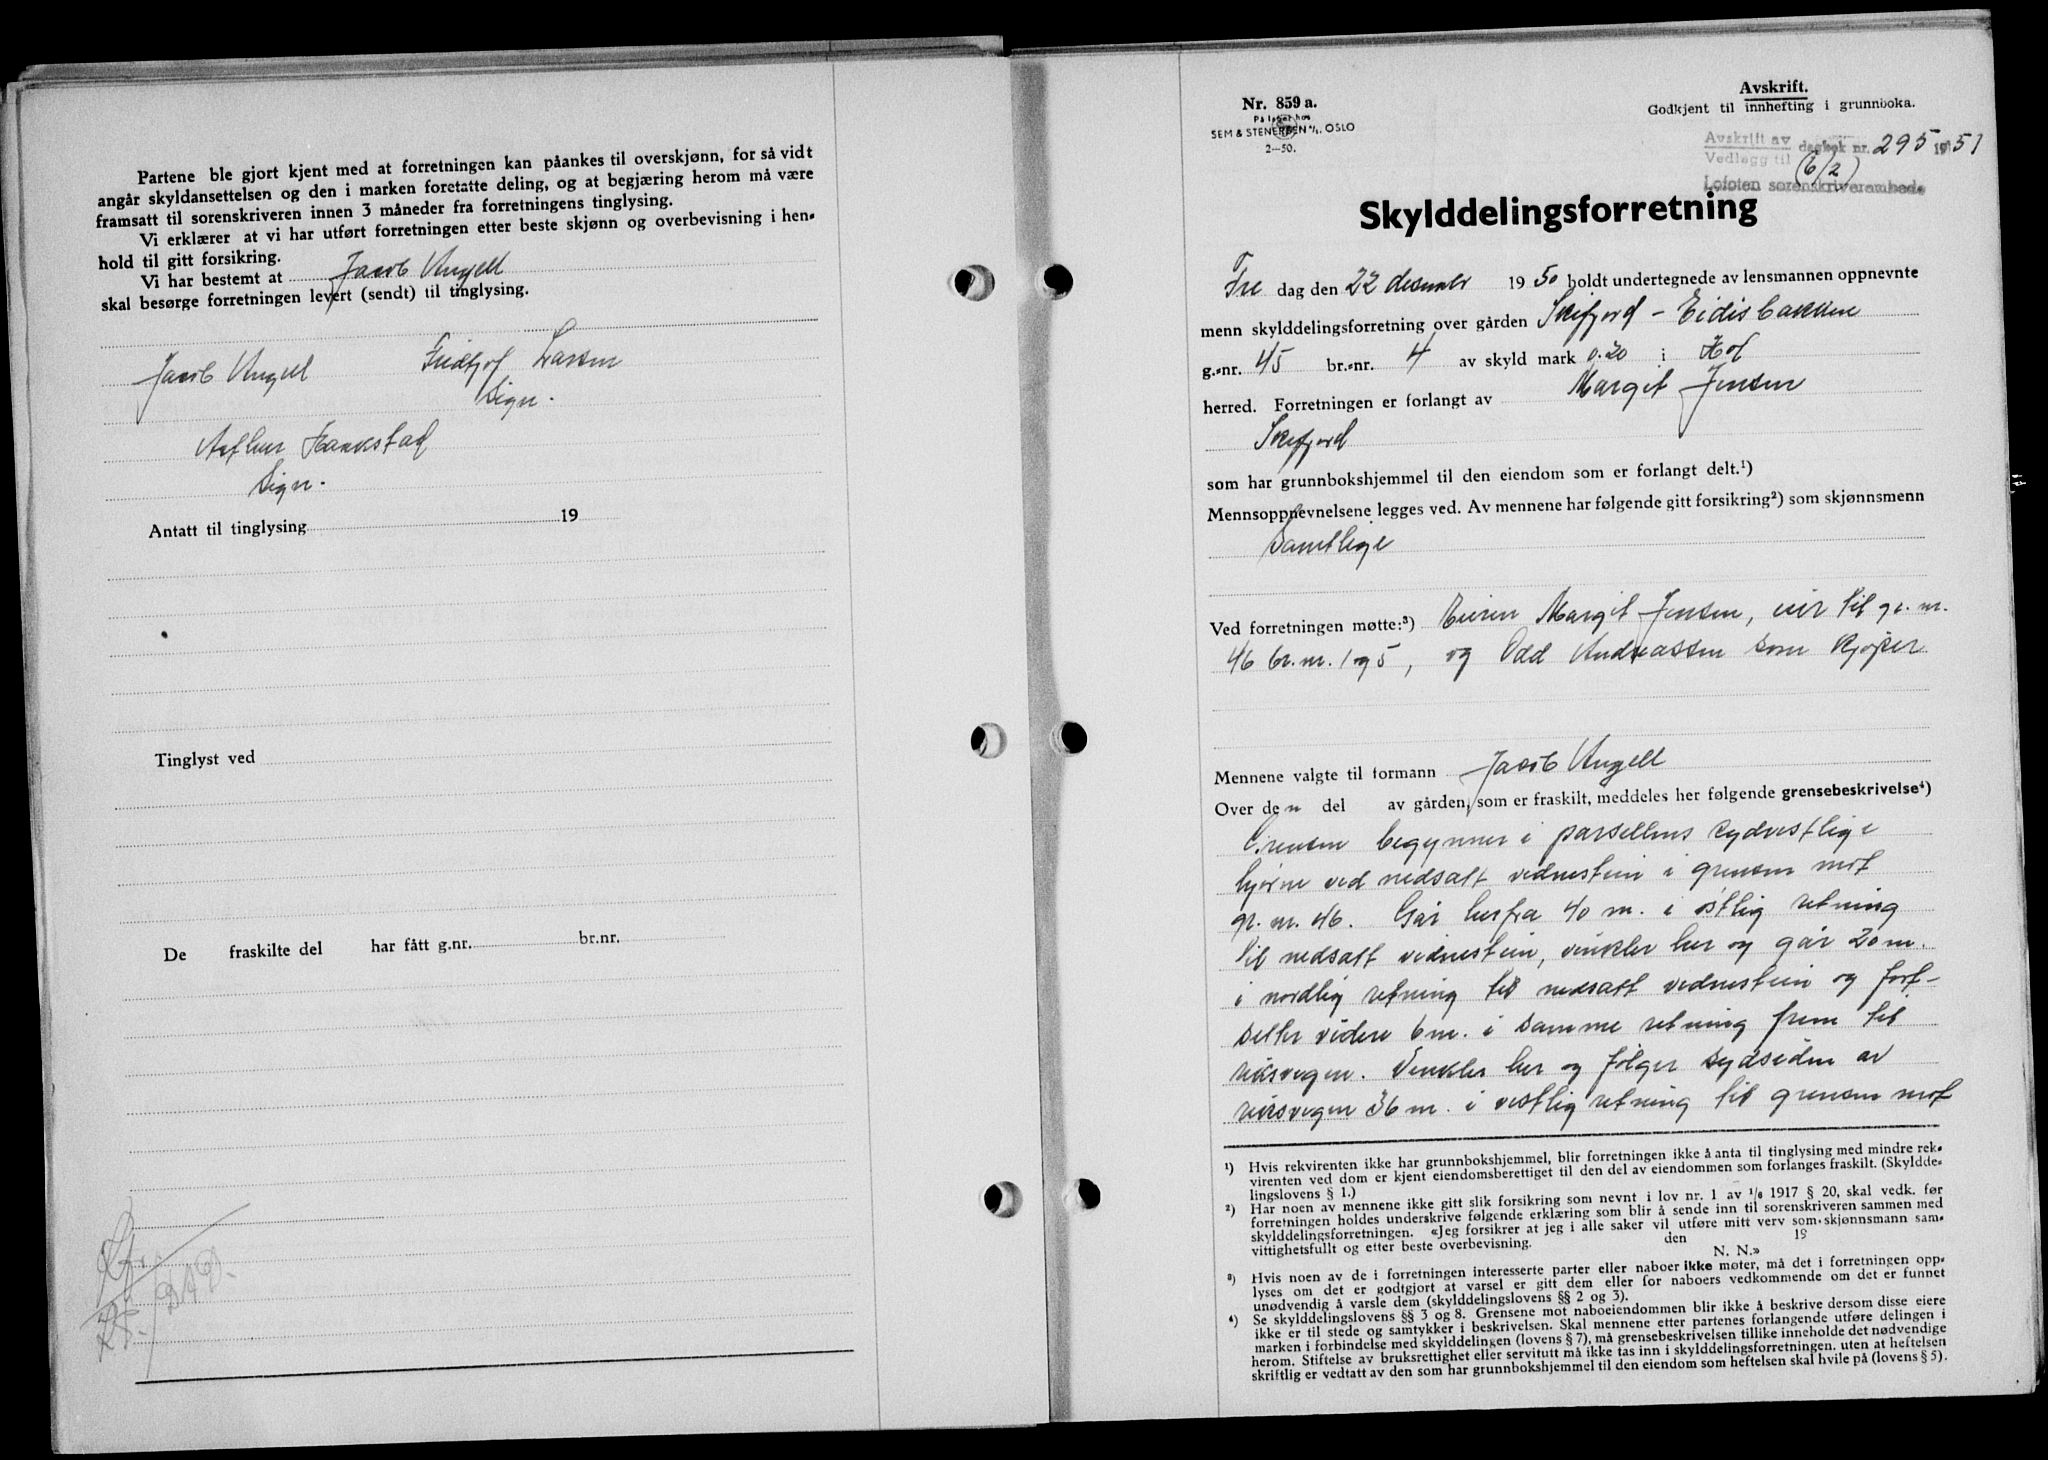 Partene ble gjort kjent med at forretningen kan påankes til overskjønn, for så vidt
angår skyldansettelsen og den i marken foretatte deling, og at begjæring herom må være
framsatt til sorenskriveren innen 3 måneder fra forretningens tinglysing.
Vi erklærer at vi har utført forretningen etter beste skjønn og overbevisning i hen-
hold til gitt forsikring.
Vi har bestemt at Jacob Angell
skal besørge forretningen levert (sendt) til tinglysing.
Jacob Angell Fridtjof Larsen
Sign.
Arthur Hankstad
Sign.
Antatt til tinglysing 19
Tinglyst ved
De fraskilte del har fått g.nr. br.nr.
Nr. 859 a.
På lager hos
SEM & STENERSEN A/S. OSLO
2-50.
Avskrift.
Godkjent til innhefting i grunnboka.
Avskrift av
Vedlegg til dagbok nr. 295 1951
(6/2)
Lofoten sorenskriverembede
Skylddelingsforretning
Fre dag den 22 desember 1950 holdt undertegnede av lensmannen oppnevnte
menn skylddelingsforretning over gården Skifjord - Eidisbakken
g.-nr. 45 br.-nr. 4 av skyld mark 0.20 i Hol
herred. Forretningen er forlangt av Margit Jensen
Skifjord
som har grunnbokshjemmel til den eiendom som er forlangt delt.¹)
Mennsoppnevnelsene legges ved. Av mennene har følgende gitt forsikring²) som skjønnsmenn
Samtlige
Ved forretningen møtte:³) Eieren Margit Jensen, eier til gr. nr.
46 br. nr. 1 og 5, og Odd Andreassen som kjøper
Mennene valgte til formann Jacob Angell
Over den del av gården, som er fraskilt, meddeles her følgende grensebeskrivelse⁴)
Grensen begynner i parsellens sydvestlige
hjørne ved nedsatt vidnestein i grensen mot
gr. nr. 46. Går herfra 40 m. i østlig retning
til nedsatt vidnestein, vinkler her og går 20 m.
i nordlig retning til nedsatt vidnestein og fort-
setter videre 6 m. i samme retning frem til
riksvegen. Vinkler her og følger sydsiden av
riksvegen 36 m. i vestlig retning til grensen mot
¹) Hvis rekvirenten ikke har grunnbokshjemmel, blir forretningen ikke å anta til tinglysing med mindre rek-
virenten ved dom er kjent eiendomsberettiget til den del av eiendommen som forlanges fraskilt. (Skyldde-
lingslovens § 1.)
²) Har noen av mennene ikke gitt slik forsikring som nevnt i lov nr. 1 av 1/6 1917 § 20, skal vedk. før
forretningen holdes underskrive følgende erklæring som blir å sende inn til sorenskriveren sammen med
skylddelingsforretningen. «Jeg forsikrer at jeg i alle saker vil utføre mitt verv som skjønnsmann sam-
vittighetsfullt og etter beste overbevisning. den 19
N. N.»
³) Hvis noen av de i forretningen interesserte parter eller naboer ikke møter, må det i forretningen opp-
lyses om det er godtgjort at varsel er gitt dem eller for naboers vedkommende om det er funnet
unødvendig å varsle dem (skylddelingslovens §§ 2 og 3).
⁴) Se skylddelingslovens §§ 3 og 8. Grensene mot naboeiendommen blir ikke å beskrive dersom disse eiere
ikke er til stede og samtykker i beskrivelsen. Skal mennene etter partenes forlangende utføre delingen i
marken i forbindelse med skylddelingen (lovens § 7), må grensebeskrivelsen tillike inneholde det nødvendige
herom. Stiftelse av bruksrettighet eller servitutt må ikke tas inn i skylddelingsforretningen, uten at heftelsen
skriftlig er vedtatt av den som har grunnbokshjemmel til den eiendom som heftelsen skal hvile på (lovens § 5).